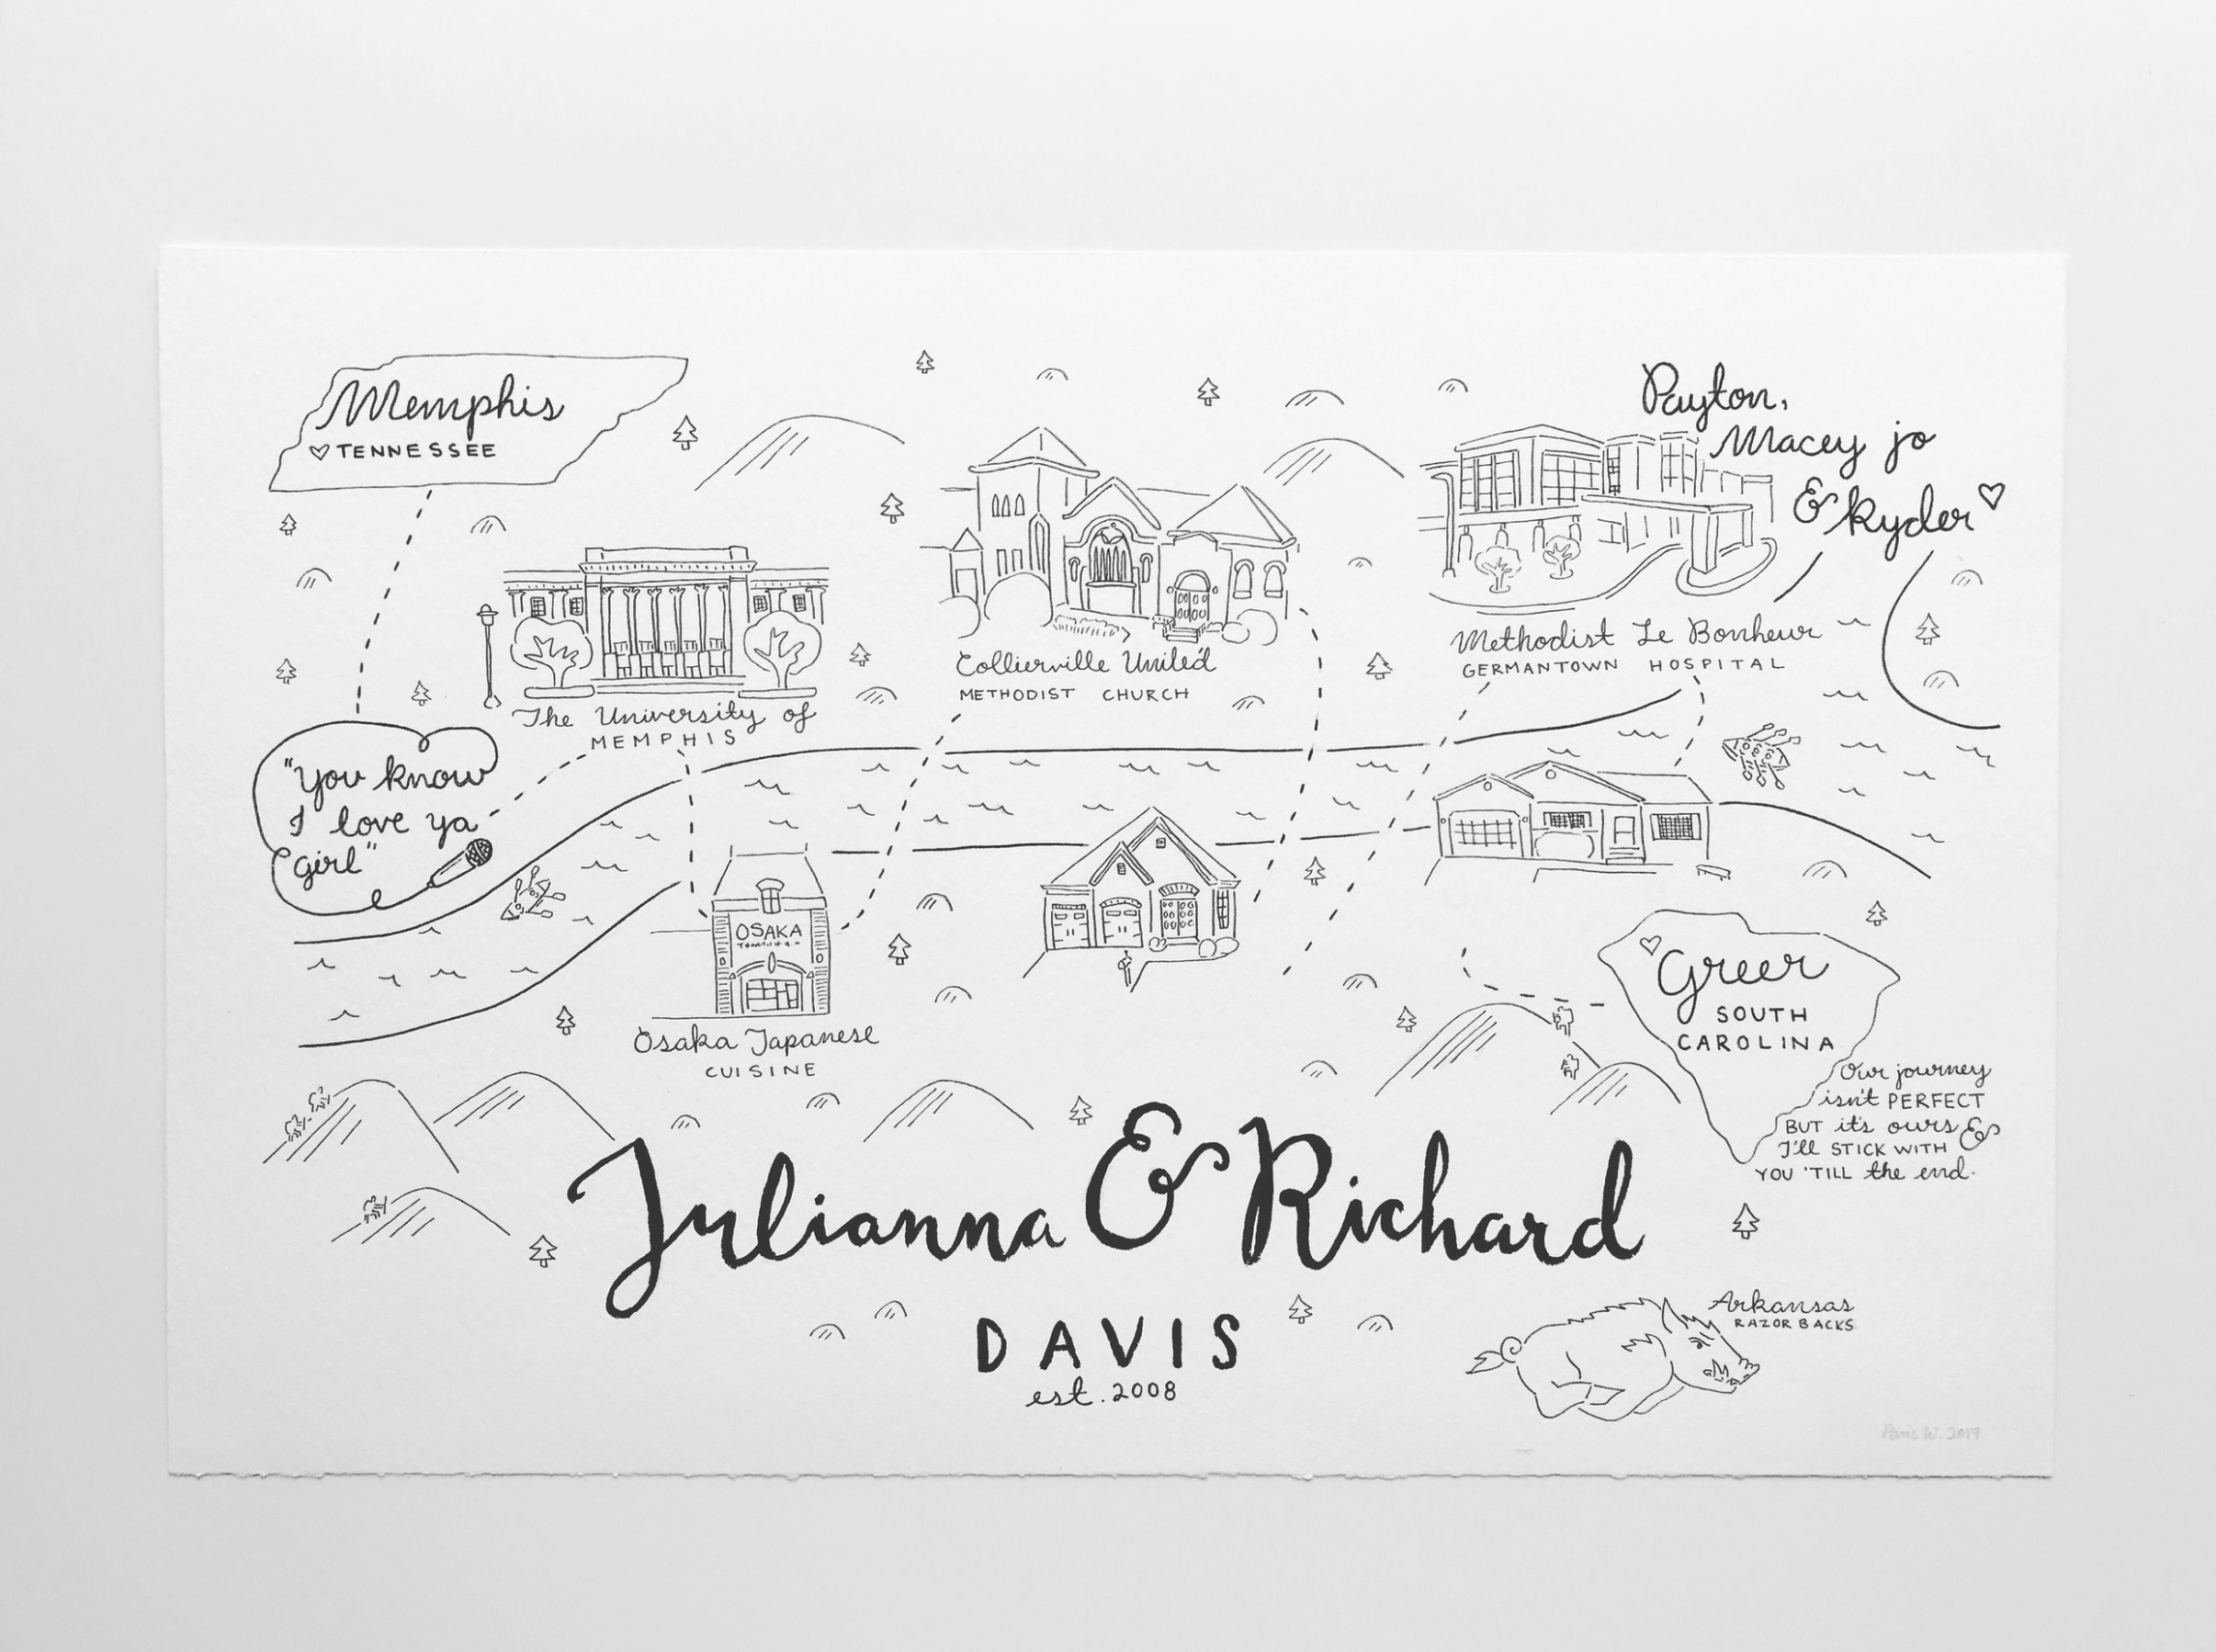 Memphis
TENNESSEE
Payton,
Macey jo
& kyder
"You know
I love ya
girl"
The University of
MEMPHIS
Collierville United
METHODIST CHURCH
Methodist Le Bonheur
GERMANTOWN HOSPITAL
OSAKA
Osaka Japanese
CUISINE
Greer
SOUTH
CAROLINA
Our journey
isn't PERFECT
BUT it's ours &
I'll STICK WITH
YOU 'TILL the end.
Julianna & Richard
DAVIS
est. 2008
Arkansas
RAZORBACKS
Paris W. 2017